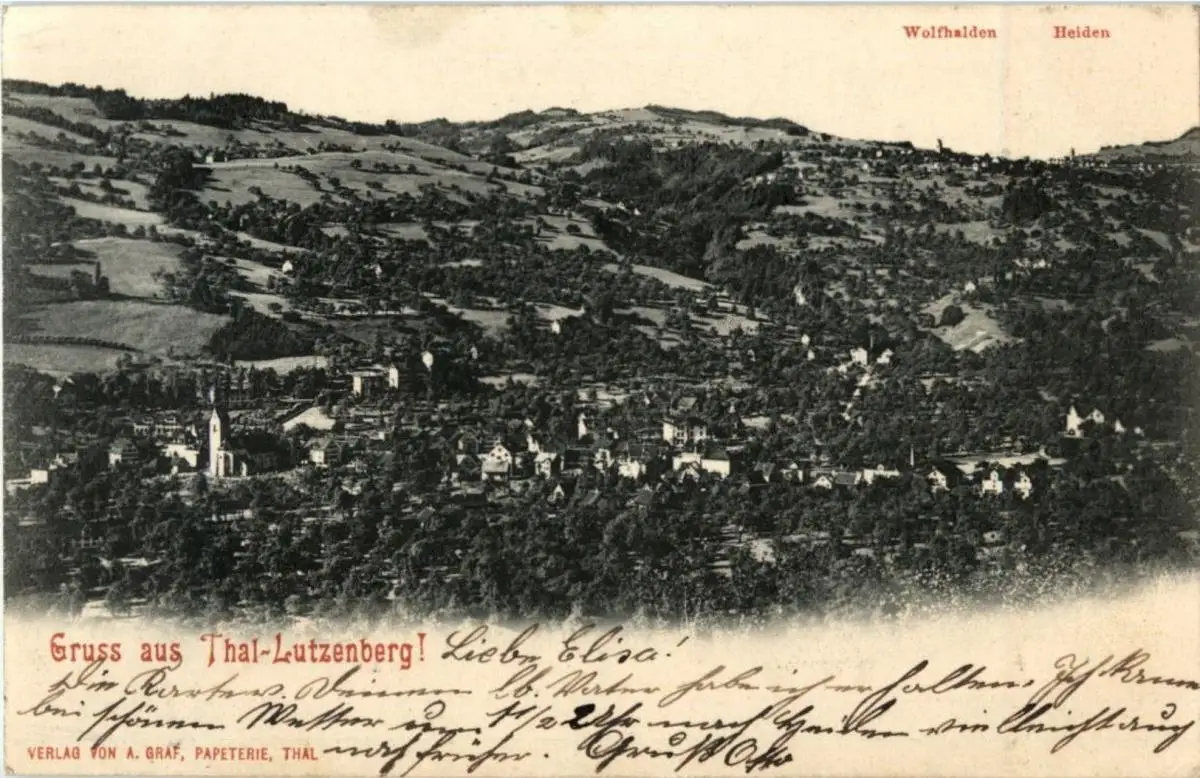 Wolfhalden Heiden
Gruss aus Thal-Lutzenberg! Liebe Elisa!
Die Karte v. Deinem lb. Vater habe ich erhalten. Ich kam
bei schönem Wetter um 1/2 2 Uhr nach Heiden vielleicht auch
noch früher. Gruß Otto
VERLAG VON A. GRAF, PAPETERIE, THAL